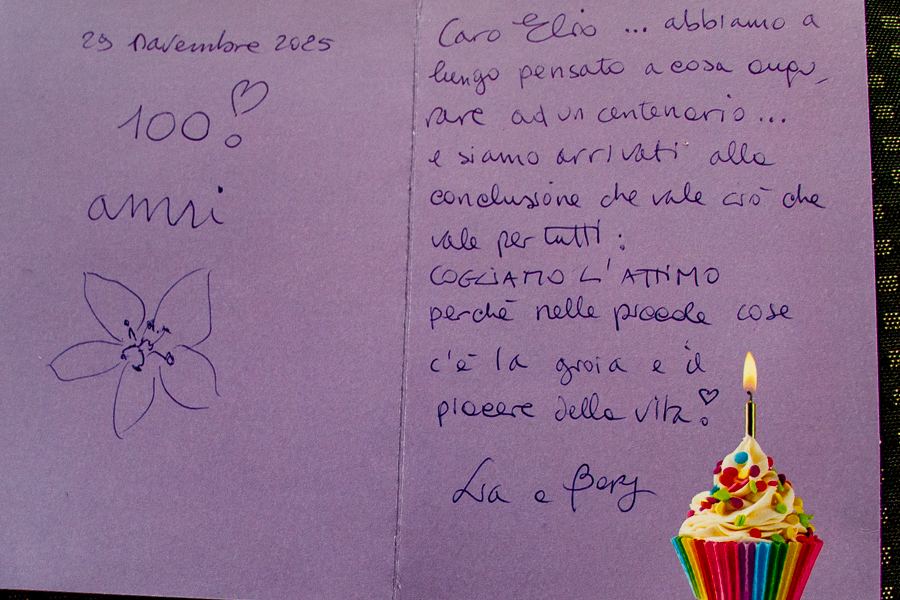 29 Novembre 2025
100!
anni
Caro Elio ... abbiamo a
lungo pensato a cosa augu-
rare ad un centenario...
e siamo arrivati alla
conclusione che vale ciò che
vale per tutti:
COGLIAMO L'ATTIMO
perché nelle piccole cose
c'è la gioia e il
piacere della vita!
Lia e Bery